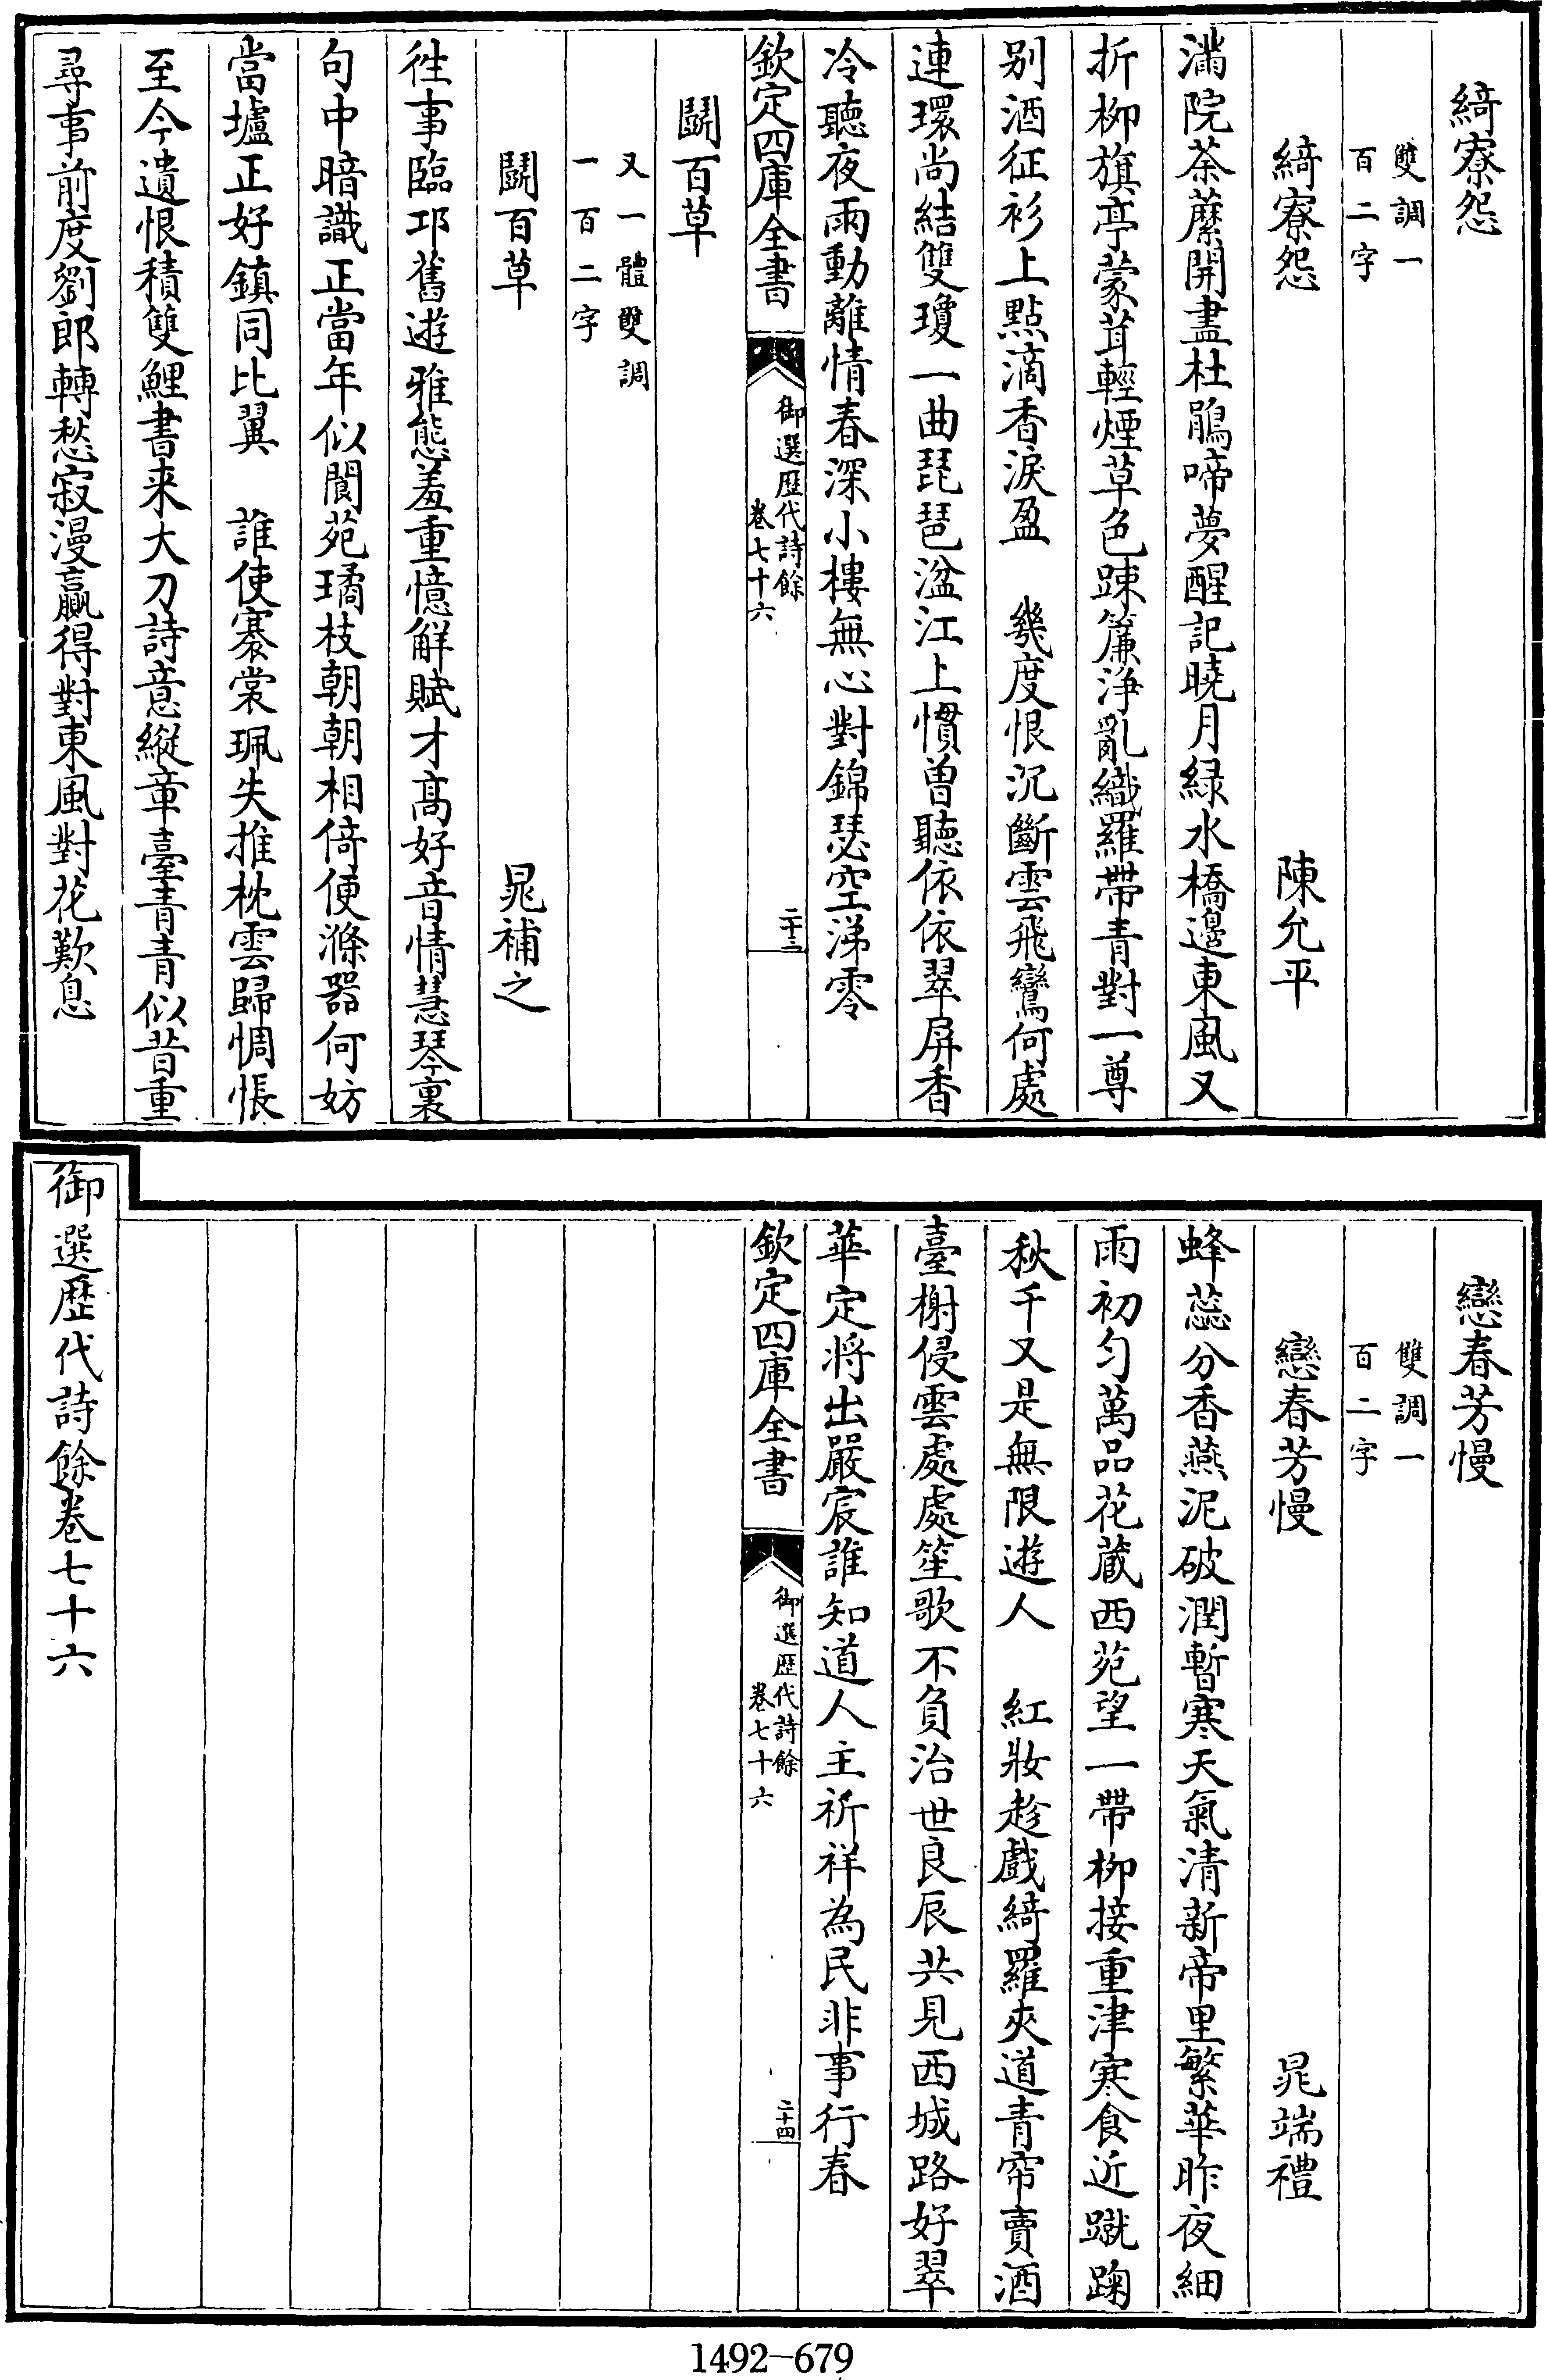 綺寮怨
雙調一
百二字
綺寮怨 陳允平
滿院荼蘼開盡杜鵑啼夢醒記曉月綠水橋邊東風又
折柳旗亭蒙茸輕煙草色疎簾淨亂織羅帶青對一尊
别酒征衫上點滴香淚盈 幾度恨沉斷雲飛鸞何處
連環尚結雙瓊一曲琵琶湓江上慣曾聽依依翠屏香
冷聽夜雨動離情春深小樓無心對錦瑟空涕零
欽定四庫全書
御選歷代詩餘
卷七十六
二十三
鬭百草
又一體雙調
一百二字
鬭百草 晁補之
徃事臨邛舊遊雅態羞重憶解賦才髙好音情慧琴裏
句中暗識正當年似閬苑璚枝朝朝相倚便滌器何妨
當壚正好鎮同比翼 誰使褰裳珮失推枕雲歸惆悵
至今遺恨積雙鯉書来大刀詩意縱章臺青青似昔重
尋事前度劉郎轉愁寂漫贏得對東風對花歎息
戀春芳慢
雙調一
百二字
戀春芳慢 晁端禮
蜂蕊分香燕泥破潤暫寒天氣清新帝里繁華昨夜細
雨初勻萬品花蔵西苑望一帶柳接重津寒食近蹴踘
秋千又是無限遊人 紅妝趁戲綺羅夾道青帘賣酒
臺榭侵雲處處笙歌不負治世良辰共見西城路好翠
華定將出嚴宸誰知道人主祈祥為民非事行春
欽定四庫全書
御選歷代詩餘
卷七十六
二十四
御選歷代詩餘卷七十六
1492-679